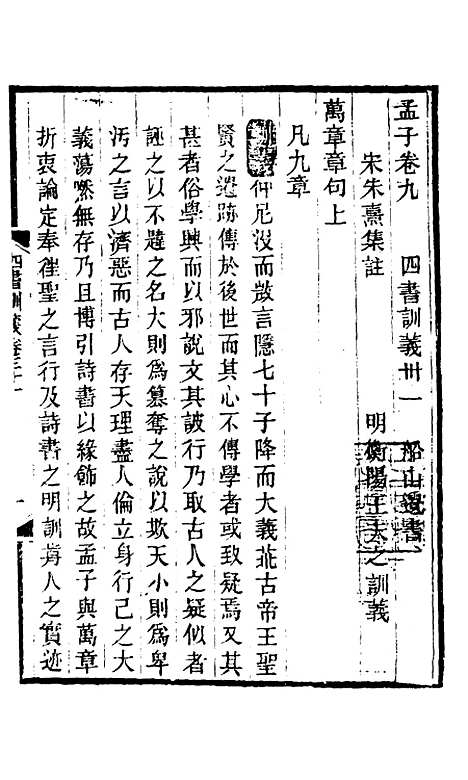 孟子卷九　四書訓義卅一　船山遺書
宋朱熹集註　明衡陽王夫之訓義
萬章章句上
凡九章
仲尼沒而微言隱七十子降而大義乖古帝王聖
賢之遺跡傳於後世而其心不傳學者或致疑焉又其
甚者俗學興而以邪說文其詖行乃取古人之疑似者
誣之以不韙之名大則爲篡奪之說以欺天小則爲卑
汚之言以濟惡而古人存天理盡人倫立身行己之大
義蕩然無存乃且博引詩書以緣飾之故孟子與萬章
折衷論定奉往聖之言行及詩書之明訓爲人之實迹
四書訓義卷三十一
一